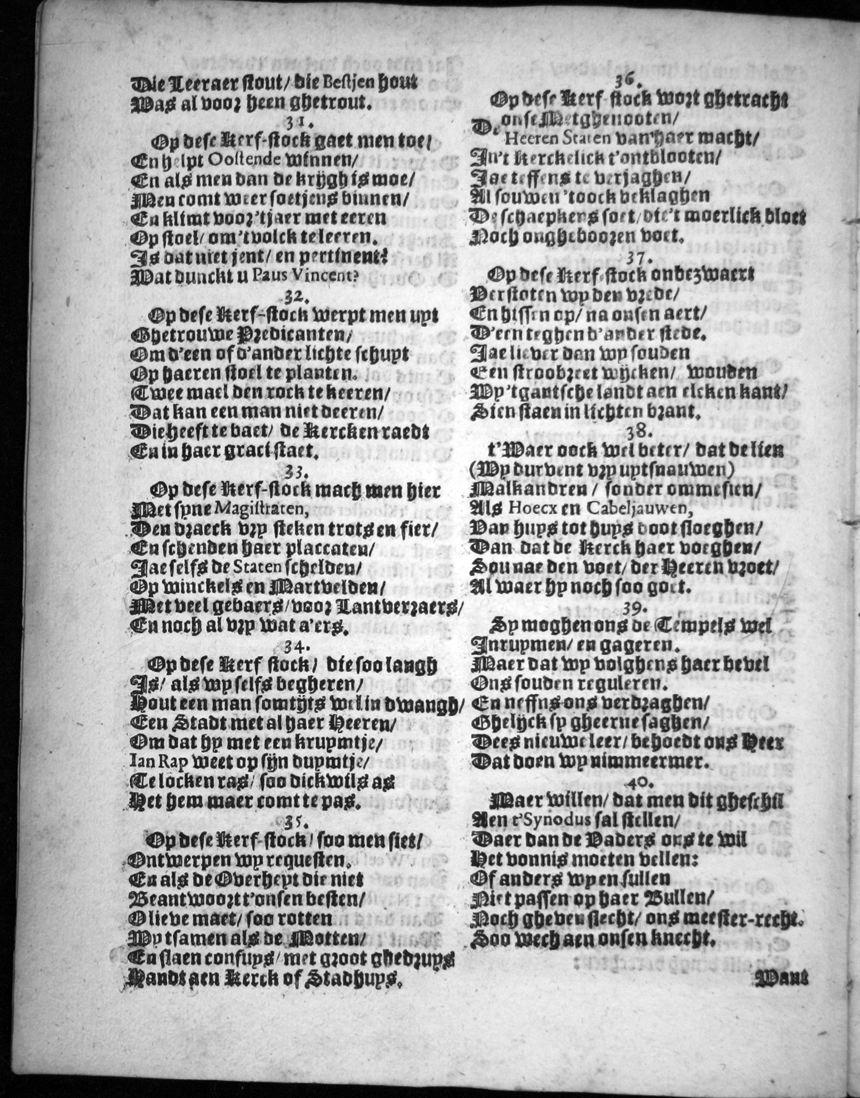 Die Leeraer stout/ die Bestjen hout
Was al voor heen ghetrout.
31.
Op dese Kerf-stock gaet men toe/
En helpt Oostende winnen/
En als men dan de krijgh is moe/
Men comt weer soetjens binnen/
En klimt voor 'tjaer met eeren
Op stoel/ om 'tvolck te leeren.
Is dat niet jent/ en pertinent?
Wat dunckt u Paus Vincent?
32.
Op dese Kerf-stock werpt men uyt
Ghetrouwe Predicanten/
Om d'een of d'ander lichte schuyt
Op haeren stoel te planten.
Twee mael den rock te keeren/
Dat kan een man niet deeren/
Die heeft te baet/ de Kercken raedt
En in haer graci staet.
33.
Op dese Kerf-stock mach men hier
Met syne Magistraten,
Den draeck vry steken trots en fier/
En schenden haer placcaten/
Jae selfs de Staten schelden/
Op winckels en Martvelden/
Met veel gebaers/ voor Lantverraers/
En noch al vry wat a'ers.
34.
Op dese Kerf stock/ die soo langh
Is/ als wy selfs begheren/
Hout een man somtijts wel in dwangh/
Een Stadt met al haer Heeren/
Om dat hy met een kruymtje/
Ian Rap weet op sijn duymtje/
Te locken ras/ soo dickwils as
Het hem maer comt te pas.
35.
Op dese Kerf-stock/ soo men siet/
Ontwerpen wy requesten.
En als de Overheyt die niet
Beantwoort t'onsen besten/
O lieve maet/ soo rotten
Wy tsamen als de Motten/
En slaen confuys/ met groot ghedruys
Handt aen Kerck of Stadhuys.
36.
Op dese Kerf-stock wort ghetracht
De onse Metghenooten/
Heeren Staten van'haer macht/
In't Kerckelick t'ontblooten/
Jae teffens te verjaghen/
Al souwen 'toock beklaghen
De schaepkens soet/ die't moerlick bloet
Noch ongheboren voet.
37.
Op dese Kerf-stock onbezwaert
Verstoten wy den vrede/
En hissen op/ na onsen aert/
D'een teghen d'ander stede.
Jae liever dan wy souden
Een stroobreet wijcken/ wouden
Wy 'tgantsche landt aen elcken kant/
Sien staen in lichten brant.
38.
t'Waer oock wel beter/ dat de lien
(Wy durvent vry uytsnauwen)
Malkandren/ sonder ommesien/
Als Hoecx en Cabeljauwen,
Van huys tot huys doot sloeghen/
Dan dat de Kerck haer voeghen/
Sou nae den voet/ der Heeren vroet/
Al waer hy noch soo goet.
39.
Sy moghen ons de Tempels wel
Inruymen/ en gageren.
Maer dat wy volghens haer bevel
Ons souden reguleren.
En neffns ons verdraghen/
Ghelijck sy gheerne saghen/
Dees nieuwe leer/ behoedt ons Heer
Dat doen wy nimmeermer.
40.
Maer willen/ dat men dit gheschil
Aen t'Synodus sal stellen/
Daer dan de Vaders ons te wil
Het vonnis moeten vellen:
Of anders wy en sullen
Niet passen op haer Bullen/
Noch gheven slecht/ ons meester-recht.
Soo wech aen onsen knecht.
Want